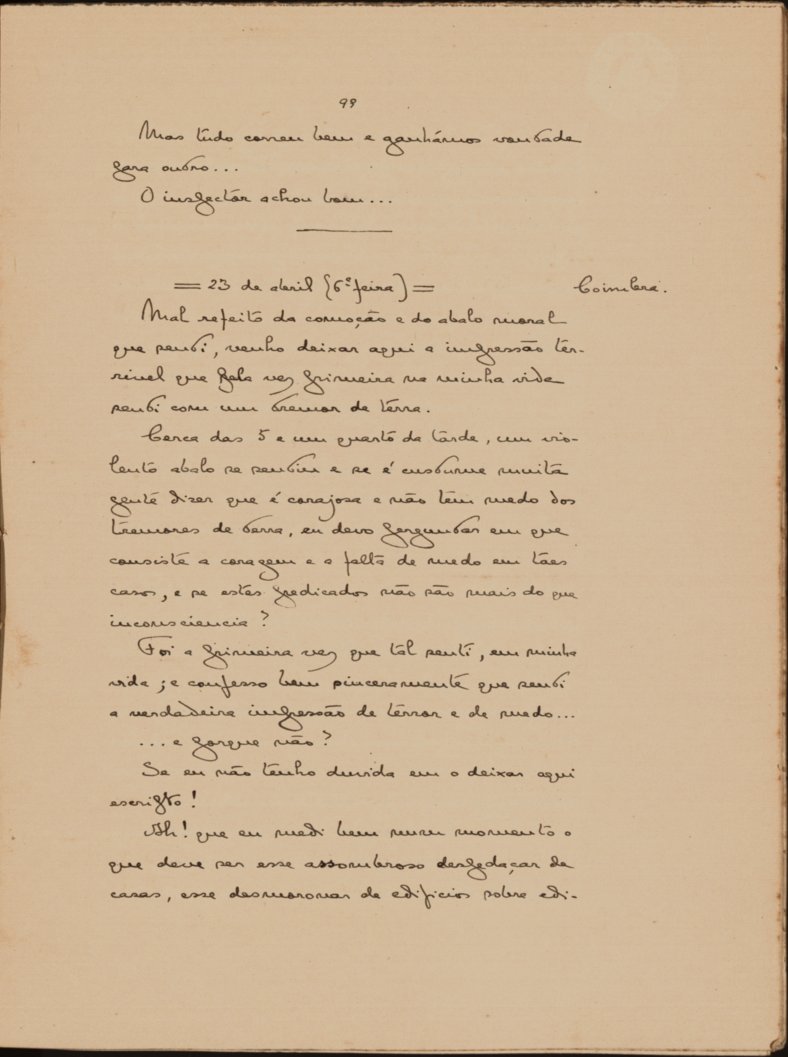 99
Mas tudo correu bem e ganhámos vontade
para outro...
O inspector achou bom...
= 23 de abril (6ª feira) = Coimbra.
Mal refeito da comoção e do abalo moral
que senti, venho deixar aqui a impressão ter-
rivel que pela vez primeira na minha vida
senti com um tremor de terra.
Cerca das 5 e um quarto da tarde, um vio-
lento abalo se sentiu e se é costume muita
gente dizer que é corajosa e não têm medo dos
tremores de terra, eu devo perguntar em que
consiste a coragem e a falta de medo em táes
casos, e se estes predicados não são mais do que
inconsciencia?
Foi a primeira vez que tal senti, em minha
vida; e confesso bem sinceramente que senti
a verdadeira impressão de terror e de medo...
... e porque não?
Se eu não tenho duvida em o deixar aqui
escripto!
Ah! que eu medi bem num momento o
que deve ser esse assombroso despedaçar de
casas, esse desmoronar de edificios sobre edi-